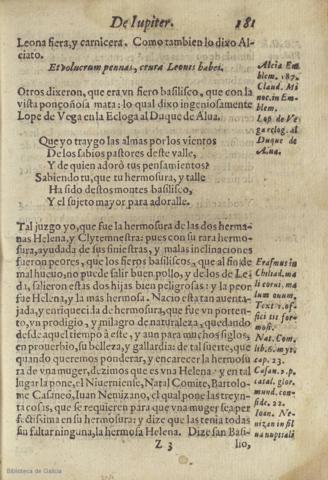 De Iupiter. 181
Leona fiera, y carnicera. Como tambien lo dixo Al-
ciato.
Et volucrum pennas, crura Leonis habes.
Otros dixeron, que era vn fiero basilisco, que con la
vista ponçoñosa mata: lo qual dixo ingeniosamente
Lope de Vega en la Ecloga al Duque de Alua.
Que yo traygo las almas por los vientos
De los sabios pastores deste valle,
Y de quien adorò tus pensamientos?
Sabiendo tu, que tu hermosura, y talle
Ha sido destos montes basilisco,
Y el sujeto mayor para adoralle.
Tal juzgo yo, que fue la hermosura de las dos herma-
nas Helena, y Clytemnestra: pues con su rara hermo-
sura, ayudada de sus siniestras, y malas inclinaciones
fueron peores, que los fieros basiliscos, que al fin de
mal hueuo, no puede salir buen pollo, y de los de Le-
da, salieron estas dos hijas bien peligrosas: y la peor
fue Helena, y la mas hermosa. Nacio esta tan auenta-
jada, y enriquecida de hermosura, que fue vn porten-
to, vn prodigio, y milagro de naturaleza, quedando
desde aquel tiempo à este, y aun para muchos siglos,
en prouerbio, su belleza, y gallardia: de tal suerte, que
quando queremos ponderar, y encarecer la hermosu-
ra de vna muger, dezimos que es vna Helena: y en tal
lugar la pone, el Niuerniense, Natal Comite, Bartolo-
me Casaneo, Iuan Nemizano, el qual pone las treyn-
ta cosas, que se requieren para que vna muger sea per
fectissima en su hermosura: y dize que las tenia todas
sin faltar ninguna, la hermosa Helena. Dize san Basi-
Z 3 lio,
Alcia Em
blem. 187.
Claud. Mi
noc. in Em-
blem.
Lop. de Ve
ga eclog. al
Duque de
Alua.
Erasmus in
Chiliad. ma
li corui. ma
lum ouum.
Text. 1. of-
fici tit. for-
mosi.
Nat. Com.
lib. 6. myt.
cap. 23.
Casan. 2. p.
catal. glor.
mund. con-
side. 22.
Ioan. Ne-
uizan in sil
ua nuptiali
Biblioteca de Galicia